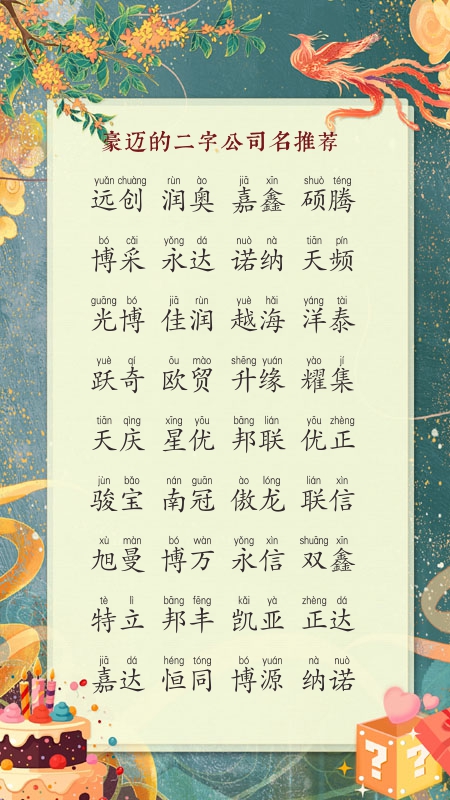 豪迈的二字公司名推荐
yuǎn chuàng rùn ào jiā xīn shuò téng
远创 润奥 嘉鑫 硕腾
bó cǎi yǒng dá nuò nà tiān pín
博采 永达 诺纳 天频
guāng bó jiā rùn yuè hǎi yáng tài
光博 佳润 越海 洋泰
yuè qí ōu mào shēng yuán yào jí
跃奇 欧贸 升缘 耀集
tiān qìng xīng yōu bāng lián yōu zhèng
天庆 星优 邦联 优正
jùn bǎo nán guān ào lóng lián xìn
骏宝 南冠 傲龙 联信
xù màn bó wàn yǒng xìn shuāng xīn
旭曼 博万 永信 双鑫
tè lì bāng fēng kǎi yà zhèng dá
特立 邦丰 凯亚 正达
jiā dá héng tóng bó yuán nà nuò
嘉达 恒同 博源 纳诺
? ?